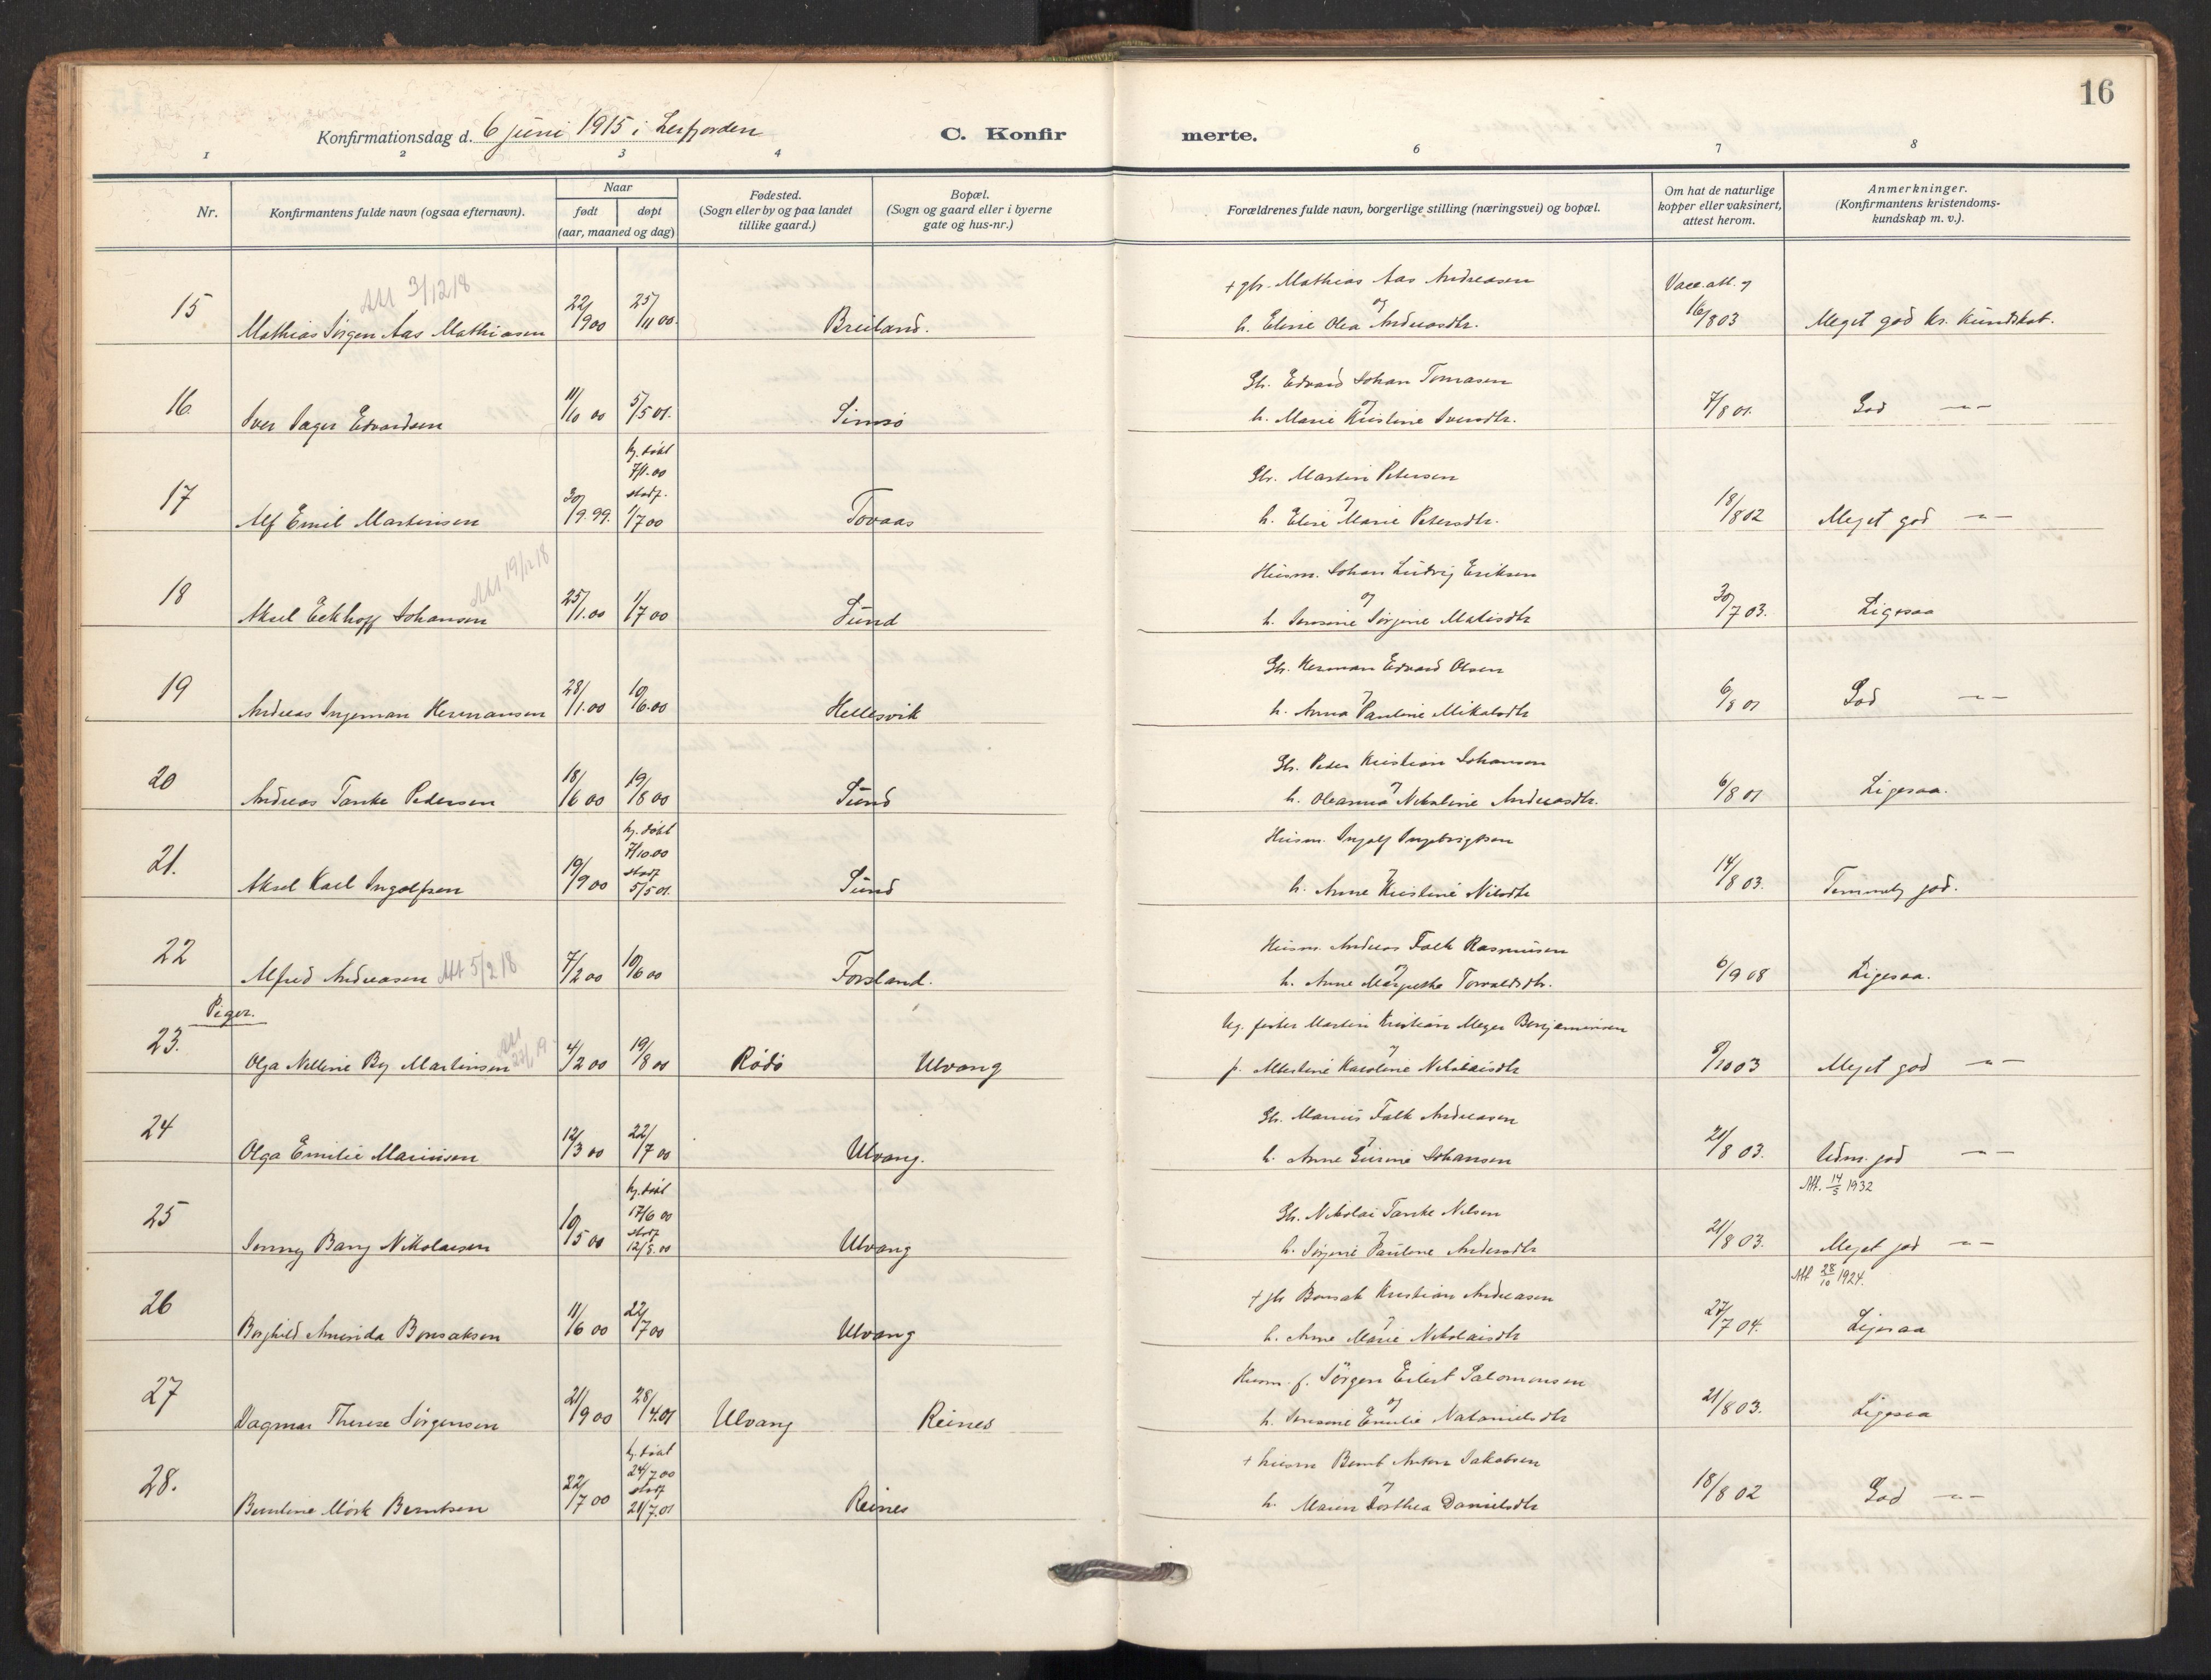 16
Konfirmationsdag d. 6 juni 1915 i Leirfjorden
C. Konfirmerte.
1 2 3 4 6 7 8
Nr.
Konfirmantens fulde navn (ogsaa efternavn).
Naar
født døpt
(aar, maaned og dag)
Fødested.
(Sogn eller by og paa landet
tillike gaard.)
Bopæl.
(Sogn og gaard eller i byerne
gate og hus-nr.)
Forældrenes fulde navn, borgerlige stilling (næringsvei) og bopæl.
Om hat de naturlige
kopper eller vaksinert,
attest herom.
Anmerkninger.
(Konfirmantens kristendoms-
kundskap m. v.).
Att 3/12 18
+ gbr. Mathias Aas Andreasen Vacc. att. af
15 Mathias Jørgen Aas Mathiasen 22/1 900 25/11 00. Breiland. og h. Eline Olea Andreasdtr. 16/8 03 Meget god kr. kundskab.
Gbr. Edvard Johan Tomasen
16 Iver Jager Edvardsen 11/10 00 5/5 01. Simsø og h. Marie Kristine Iversdtr. 7/8 01. God —"—
hj. døbt
7/1.00
stadf.
Gbr. Martin Petersen
17 Alf Emil Martinsen 30/9.99. 1/7 00 Tovaas og h. Elise Marie Petersdtr. 18/8 02 Meget god —"—
Att 19/12 18
Husm. Johan Ludvig Eriksen
18 Aksel Eckhoff Johansen 25/1.00 1/7 00 Sund og h. Jensine Jørgine Matisdtr 30/7 03. Ligesaa
Gbr. Herman Edvard Olsen
19 Andreas Ingeman Hermansen 28/1.00 10/6.00 Hellesvik og h. Anna Pauline Mikalsdtr 6/8 01 God —"—
Gbr. Peder Kristian Johansen
20 Andreas Tanke Pedersen 18/6 00 19/8 00 Sund og h. Oleanna Nikoline Andreasdtr. 6/8 01 Ligesaa.
hj. døbt
7/10.00
stadf
Husm. Ingolf Ingebrigtsen
21. Aksel Karl Ingolfsen 19/9 00 5/5 01. Sund og h. Anne Kristine Nilsdtr 14/8 03. Temmelig god.
Husm. Andreas Falk Rasmusen
22 Alfred Andreasen Att 5/2 18 7/2 00 10/6 00 Forsland. og h. Anne Margrethe Torvaldsdtr. 6/9 08 Ligesaa.
Piger.
Att 22/1 19
Ug. fisker Martin Kristian Meyer Benjaminsen
23. Olga Nelline By Martinsen 4/2 00 19/8 00 Rødø Ulvang og p. Albertine Karoline Nikolaisdtr 8/10 03 Meget god —"—
Gbr. Marius Falk Andreasen
24 Olga Emilie Mariusen 12/3 00 22/7 00 Ulvang. og h. Anne Gurine Johansen 21/8 03. Udm. god —"—
Att. 14/5 1932
hj. døbt
17/6 00
stadf
Gbr. Nikolai Tanke Nilsen
25 Jenny Bang Nikolaisen 10/5 00 12/8.00 Ulvang og h. Jørgine Pauline Andersdtr 21/8 03. Meget god —"—
Att 28/10 1924.
+ gbr Bonsak Kristian Andreasen
26 Borghild Amanda Bonsaksen 11/6 00 22/7 00 Ulvang og h. Anne Marie Nikolaisdtr 27/7 04. Ligesaa
Husm. f. Jørgen Eilert Salomonsen
27 Dagmar Therese Jørgensen 21/9 00 28/4.01 Ulvang Reines og h. Jensine Emilie Natanielsdtr 21/8 03. Ligesaa
hj. døbt
24/7 00
stadf
+ husm Bernt Anton Jakobsen
28. Berntine Mørk Berntsen 22/7 00 21/7.01 Reines og h. Maren Dorthea Danielsdtr 18/8 02 God —"—